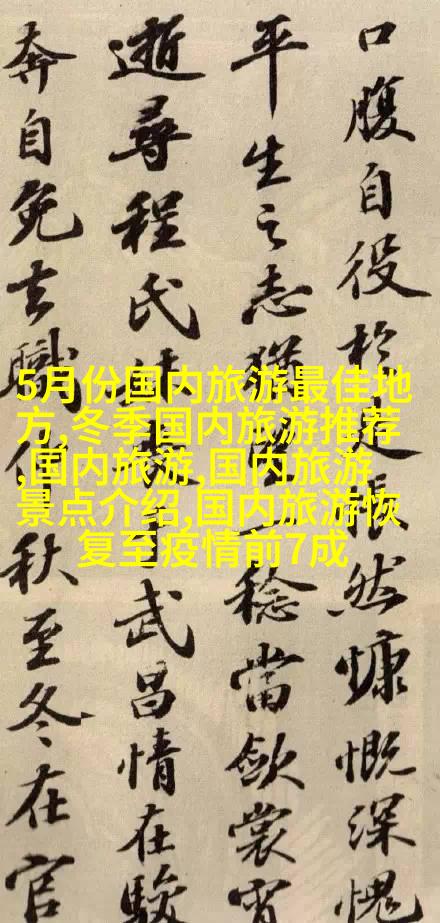 口腹自役於是悵然慷慨深愧
平生之志猶望一稔當斂裳宵
逝尋程氏妹喪于武昌情在駿
奔自免去職仲秋至冬在官
5月份国内旅游最佳地
方,冬季国内旅游推荐
,国内旅游,国内旅游
景点介绍,国内旅游恢
复至疫情前7成